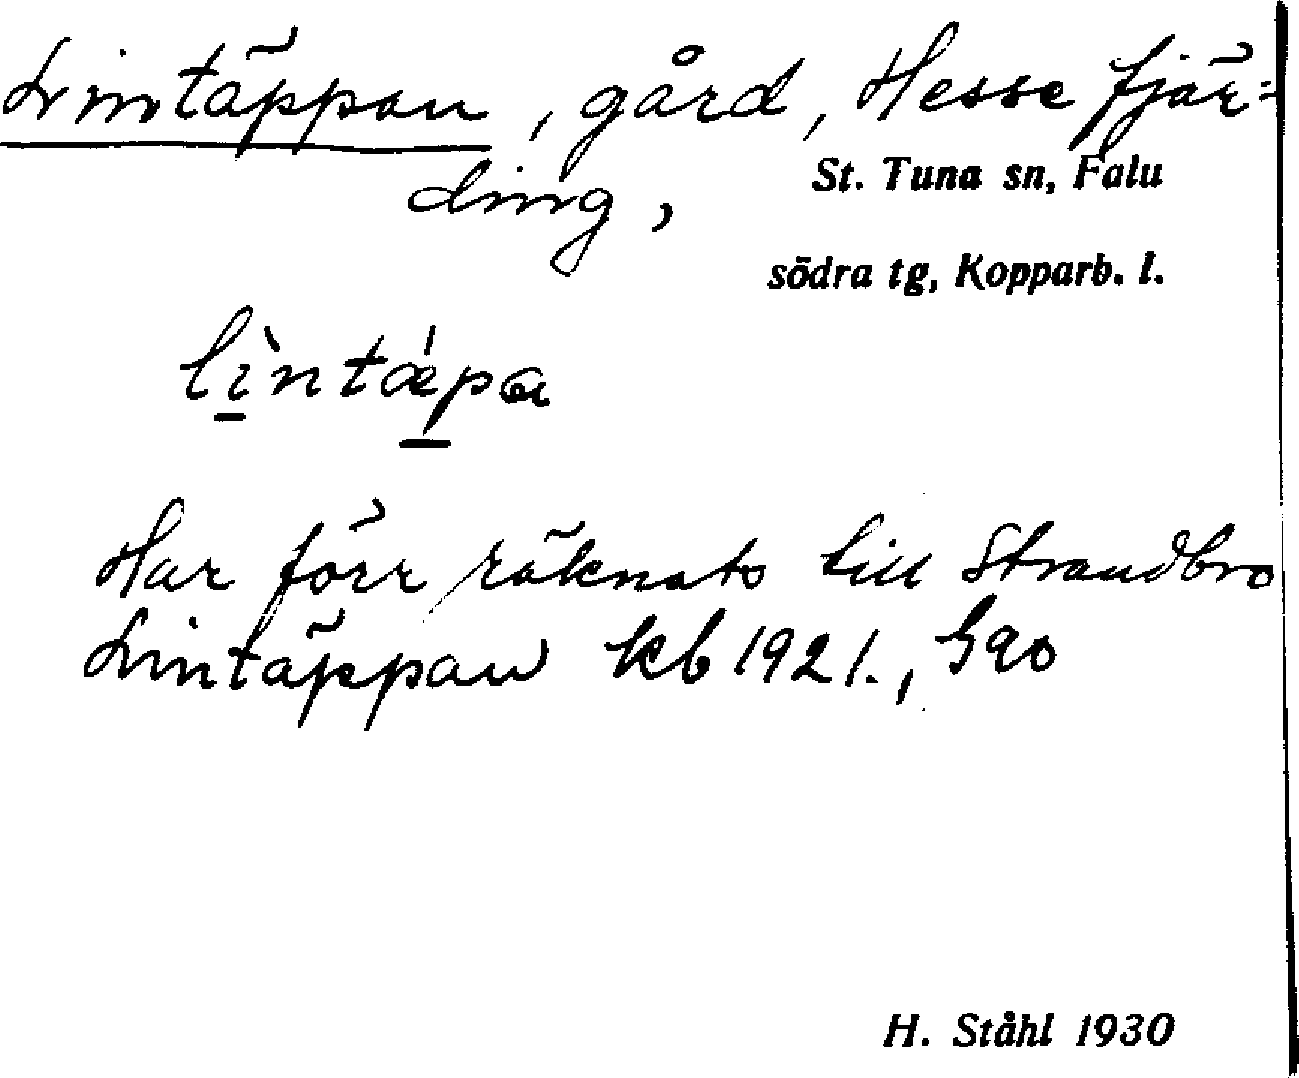 Lintäppan, gård, Hesse fjär-
ding,
St. Tuna sn, Falu
södra tg, Kopparb. l.
lìntǽpa
Har förr räknats till Strandbro
Lintäppan kb 1921.,
H. Ståhl 1930